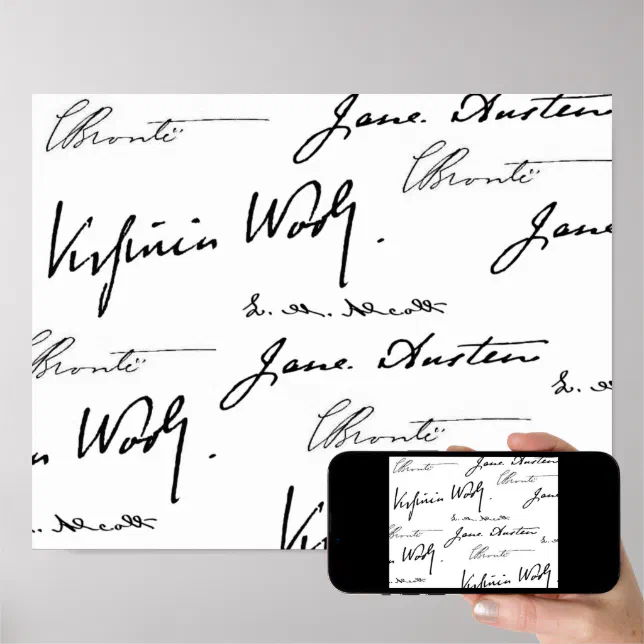 CBrontë
Jane. Austen
CBrontë
Virginia Woolf.
Jane
L. M. Alcott
CBrontë
Jane. Austen
L. M.
Woolf.
CBrontë
M. Alcott
CBrontë
Jane. Austen
CBrontë
Virginia Woolf.
Jane
L. M. Alcott
CBrontë
Jane. Austen
Woolf.
CBrontë
M. Alcott
Virginia Woolf.